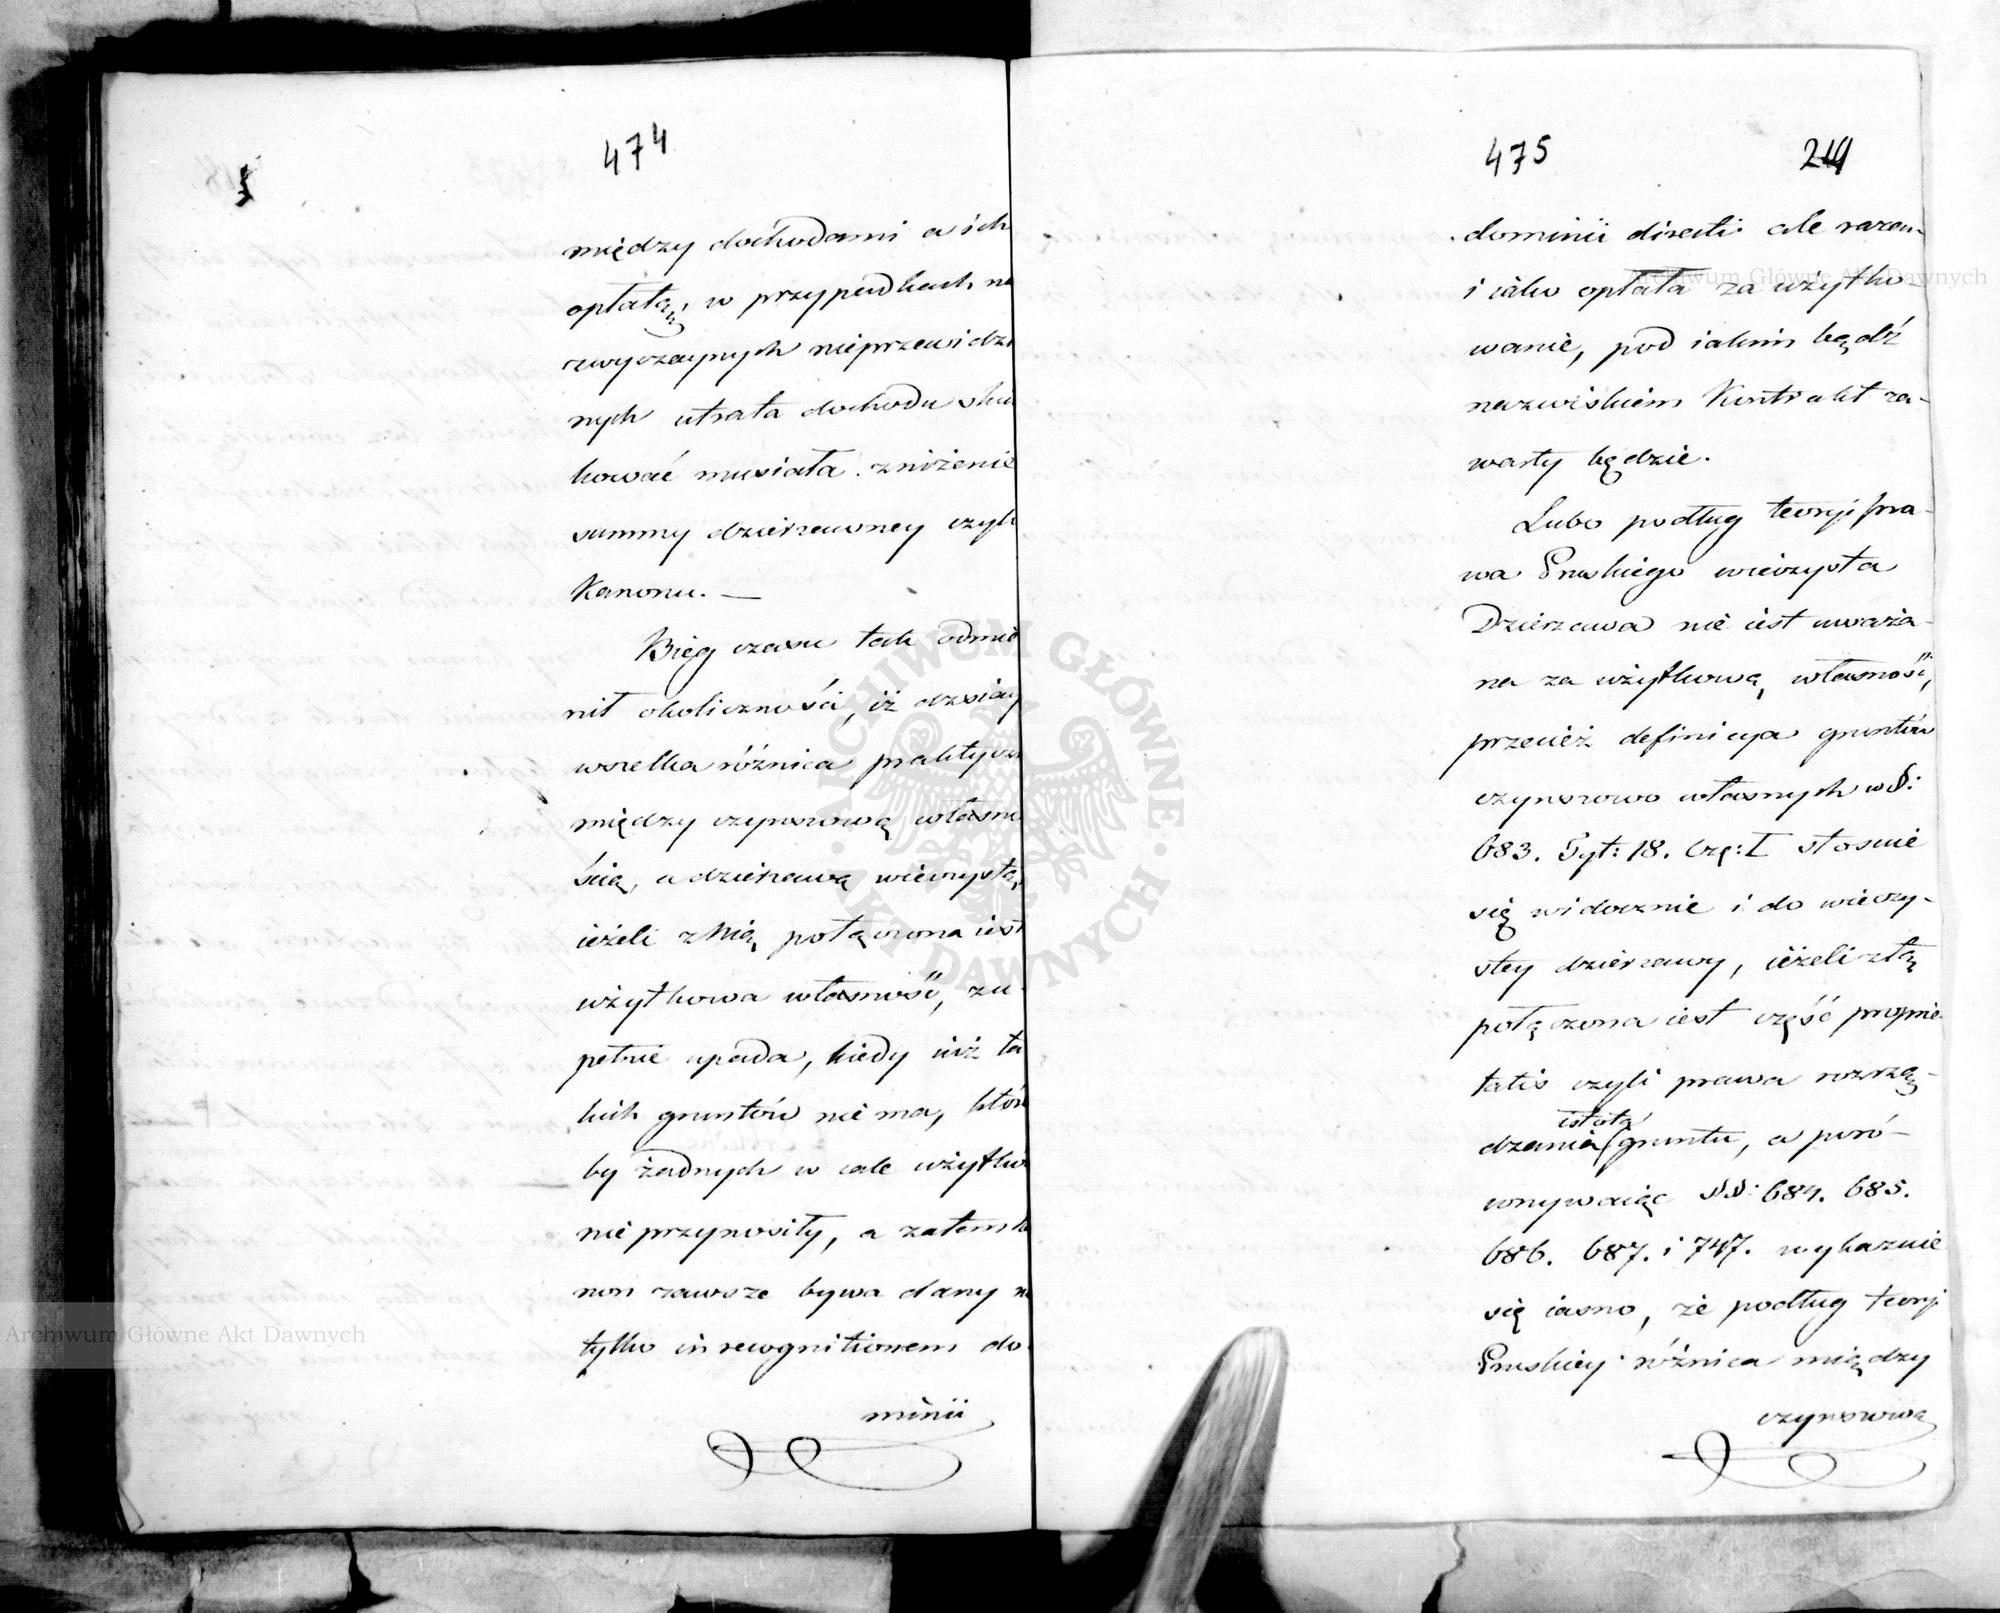 474
między dochodami a ich
opłatą, w przypadkach na
zwyczaynych nieprzewidzi
nych utrata dochodu sku
kować musiała zniżenie
summy dzierzawney czyli
Kanonu. —
Bieg czasu tak odmie
nił okoliczności, iż dzisiay
wszelka różnica praktycz
między czynszową własno
ścią, a dzierzawą wieczystą,
ieżeli z Nią połączona iest
użytkowa własność, zu-
pełnie upada, kiedy iuż ta
kich gruntów nie ma, któr
by żadnych w cale użytków
nie przynosiły, a zatem ka
non zawsze bywa dany ni
tylko in recognitionem do-
minii
475
219
dominii directi ale razem
i iako opłata za użytko-
wanie, pod iakim bądź
nazwiskiem Kontrakt za-
warty będzie.
Lubo podług teoryi pra-
wa Pruskiego wieczysta
Dzierzawa nie iest uważa-
na za użytkową własność,
przecież definicya gruntów
czynszowo własnych w §:
683. Tyt: 18. Czę: I stosuie
się widocznie i do wieczy-
stey dzierzawy, ieżeli z tą
połączona iest część proprie-
tatis czyli prawa rozrzą-
istotą
dzania gruntu, a poró-
wnywaiąc §§: 684. 685.
686. 687. i 747. wykazuie
się iasno, że podług teoryi
Pruskiey różnica między
czynszową
Archiwum Główne Akt Dawnych
Archiwum Główne Akt Dawnych
ARCHIWUM GŁÓWNE
AKT DAWNYCH